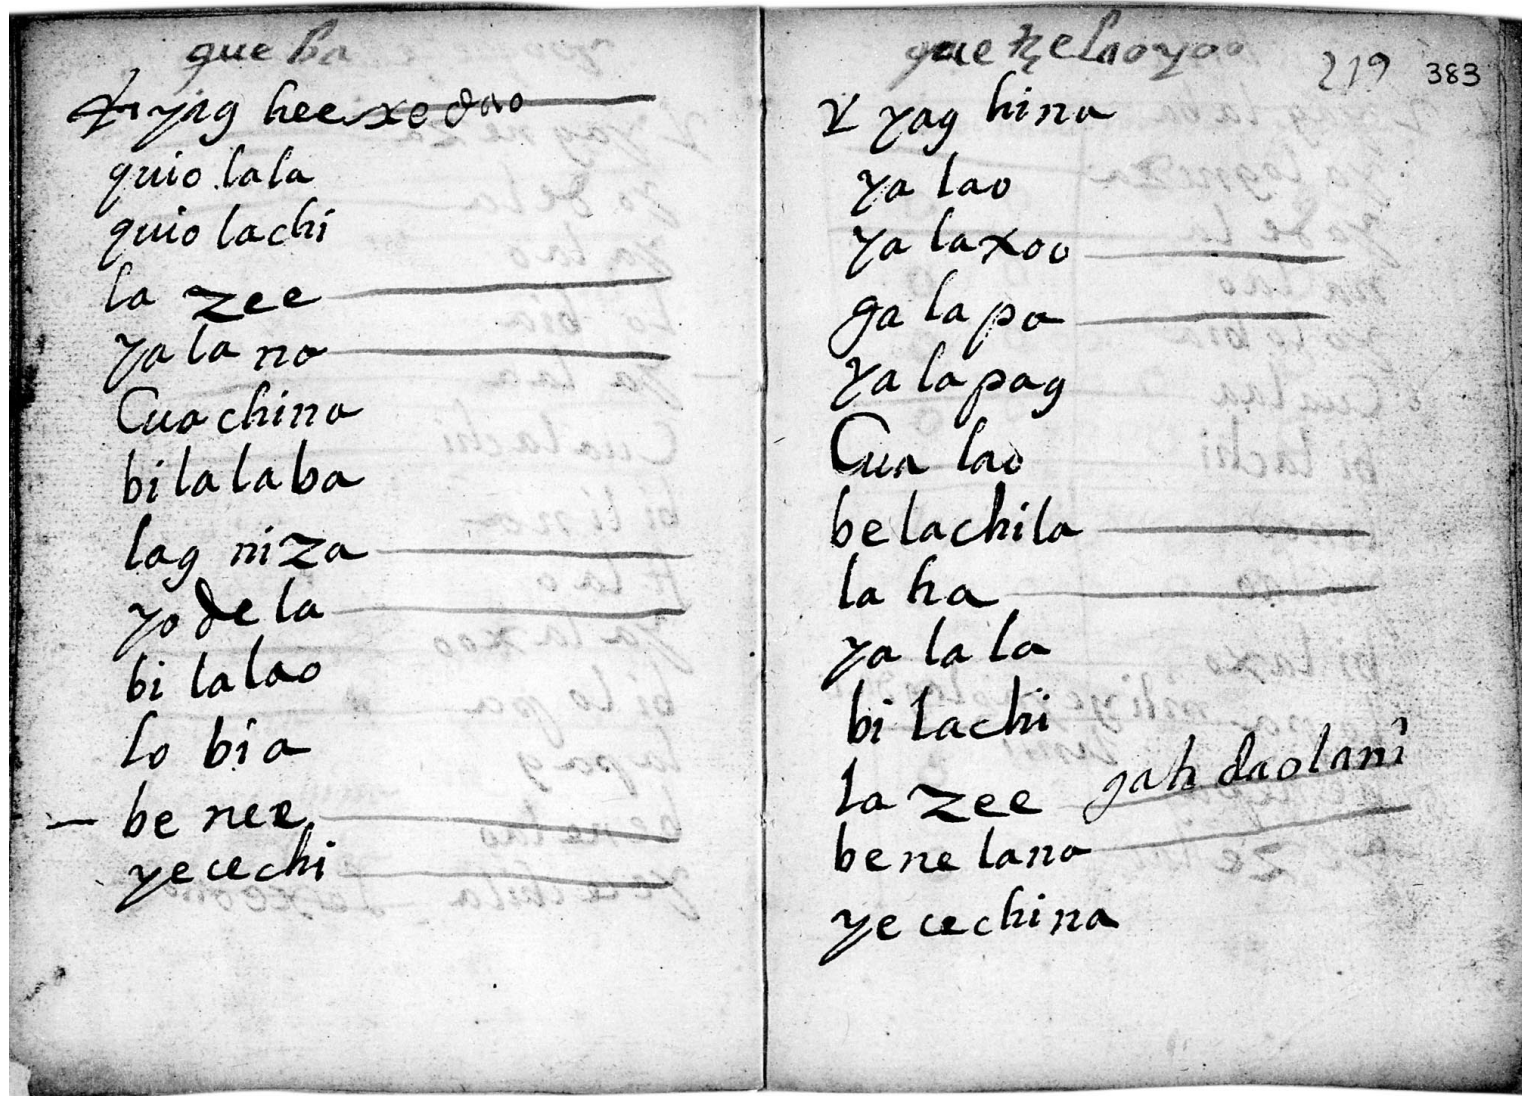 que ba
yag hee xo dao
quio lala
quio lachi
la zee
ya la na
Cua china
bi la la ba
lag niza
yo de la
bi la lao
lo bia
be nee
yecechi
que tze lao yoo
219 383
yag hina
ya lao
ya la xoo
ga la pa
ya la pag
Cua lao
be lachila
la ha
ya la la
bi lachi
la zee gah dao lani
be ne lana
ye cechina